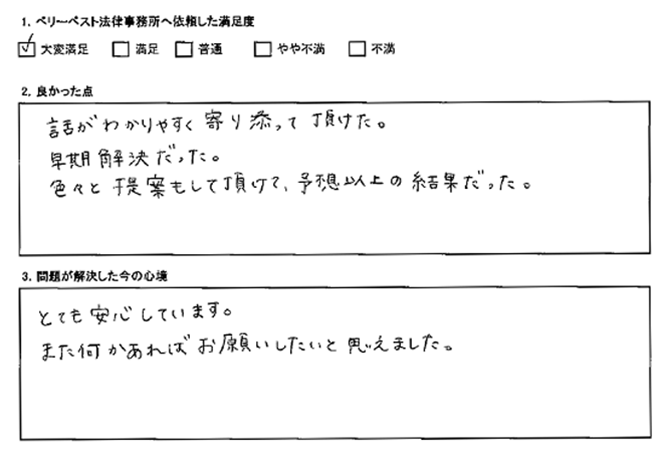 1. ベリーベスト法律事務所へ依頼した満足度
☑ 大変満足 □ 満足 □ 普通 □ やや不満 □ 不満
2. 良かった点
話がわかりやすく寄り添って頂けた。
早期解決だった。
色々と提案もして頂けて、予想以上の結果だった。
3. 問題が解決した今の心境
とても安心しています。
また何かあればお願いしたいと思えました。